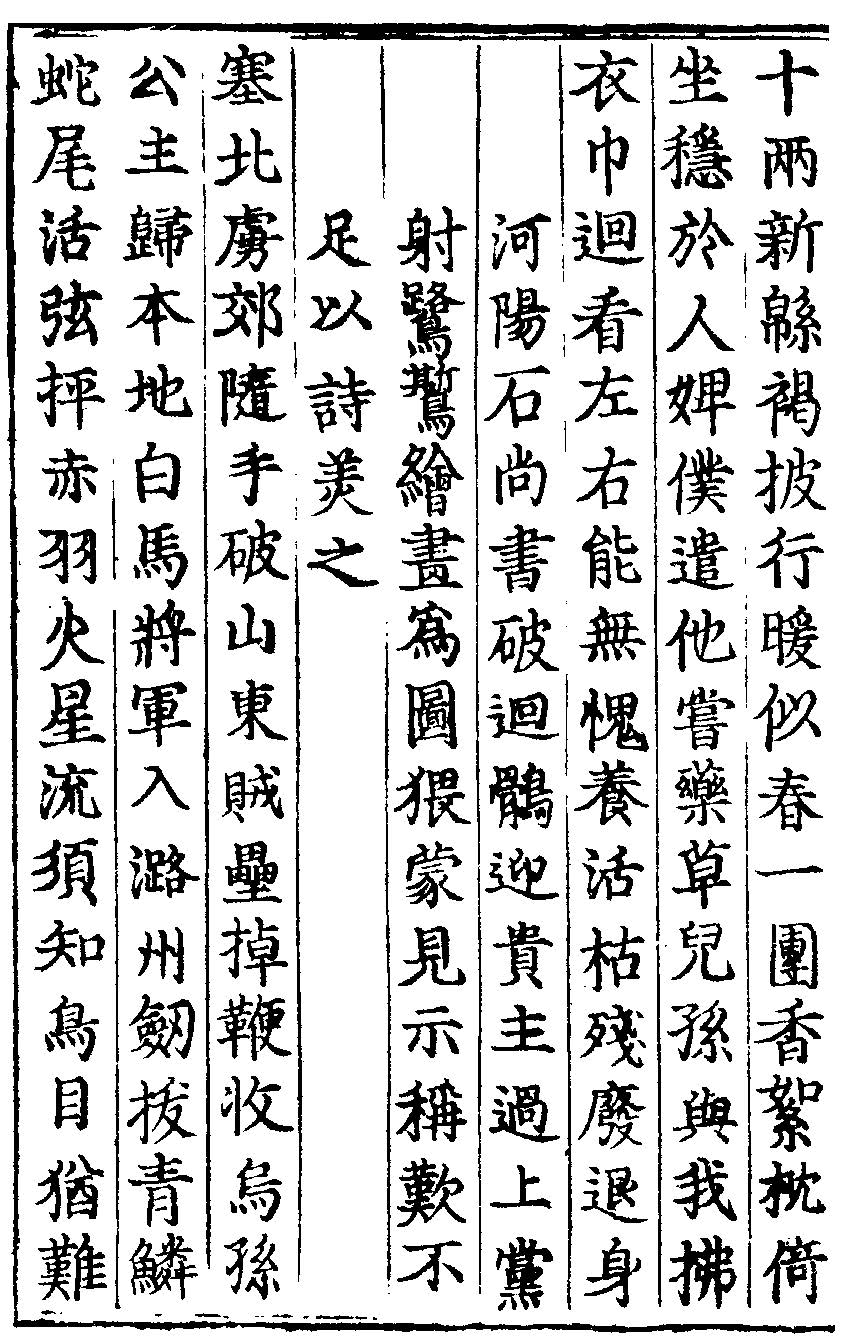 十兩新緜褐披行暖似春一團香絮枕倚
坐穩於人婢僕遣他嘗藥草兒孫與我拂
衣巾迴看左右能無愧養活枯殘廢退身
河陽石尚書破迴鶻迎貴主過上黨
射鷺鷥繪畫爲圖猥蒙見示稱歎不
足以詩美之
塞北虜郊隨手破山東賊壘掉鞭收烏孫
公主歸本地白馬將軍入潞州劒拔青鱗
蛇尾活弦抨赤羽火星流須知鳥目猶難